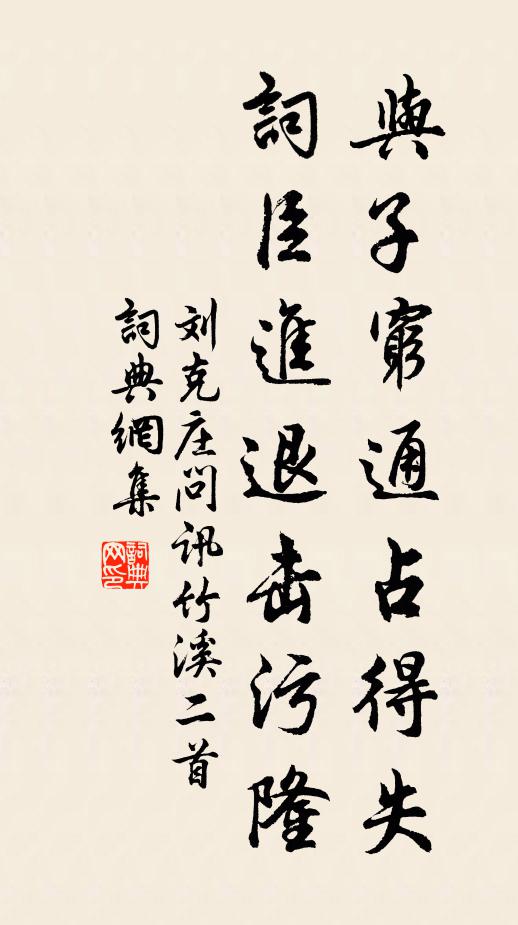 與子窮通占得失
詞臣進退击污隆
刘克庄問訊竹溪二首
詞典網集
詞典
网印